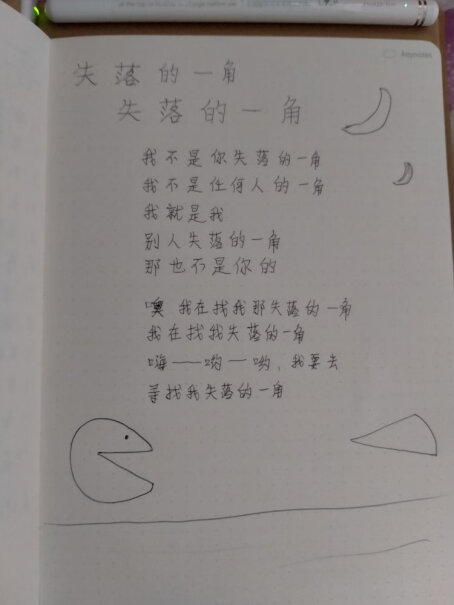 keynotes
失落的一角
失落的一角
我不是你失落的一角
我不是任何人的一角
我就是我
别人失落的一角
那也不是你的
噢 我在找我那失落的一角
我在找我失落的一角
嗨——哟—哟，我要去
寻找我失落的一角